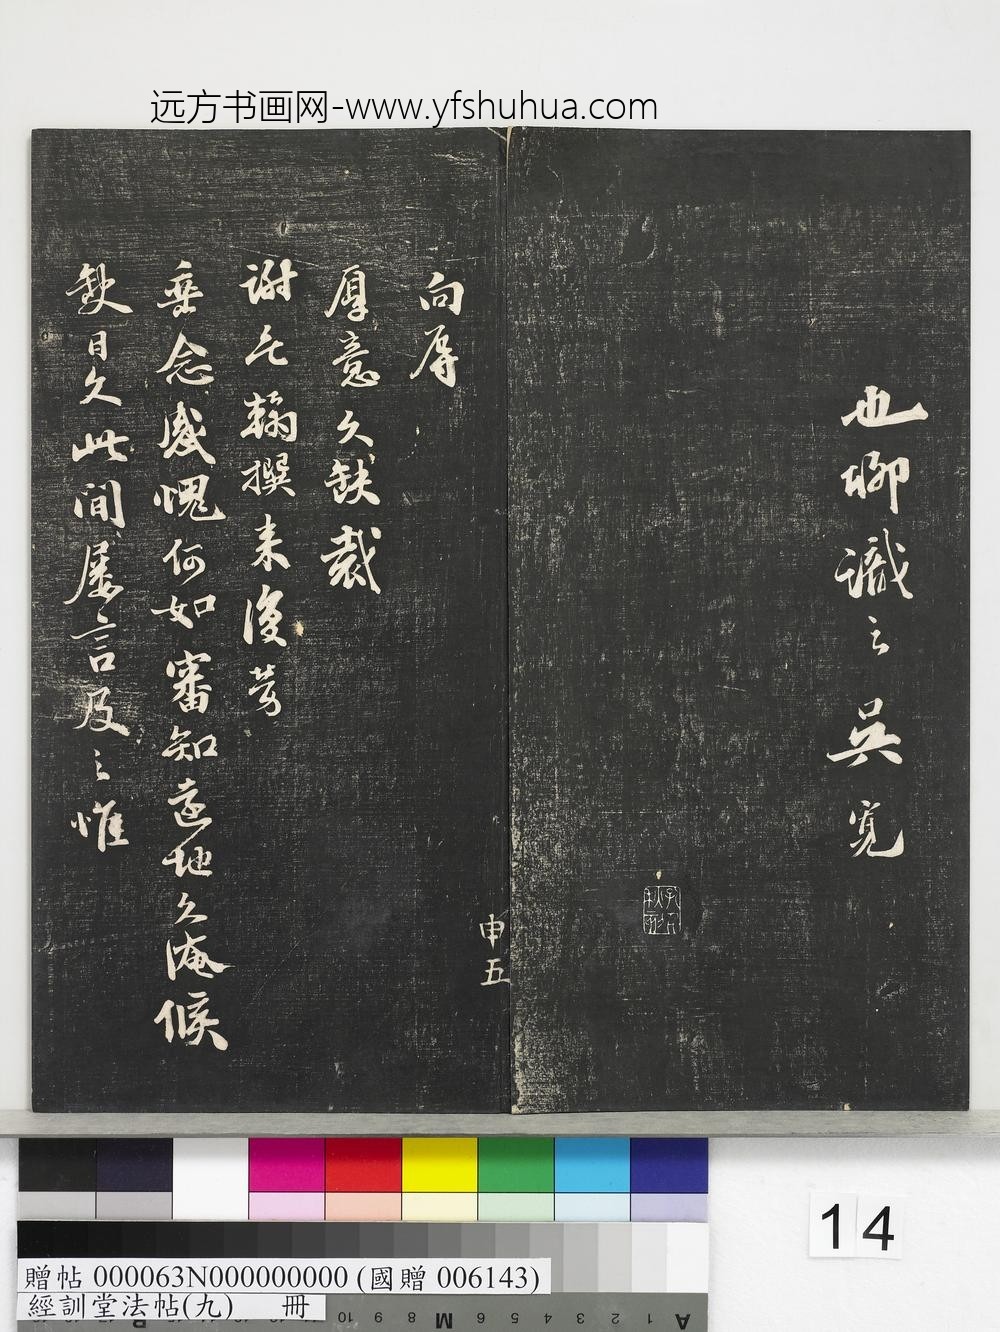 远方书画网-www.yfshuhua.com
也聊識之吳寬
申五
向辱
厚意久缺裁
謝乞翰撰来復勞
垂念感愧何如審知遠地久淹候
缺日久此間屢言及之惟
14
贈帖 000063N000000000 (國贈 006143)
經訓堂法帖(九) 冊